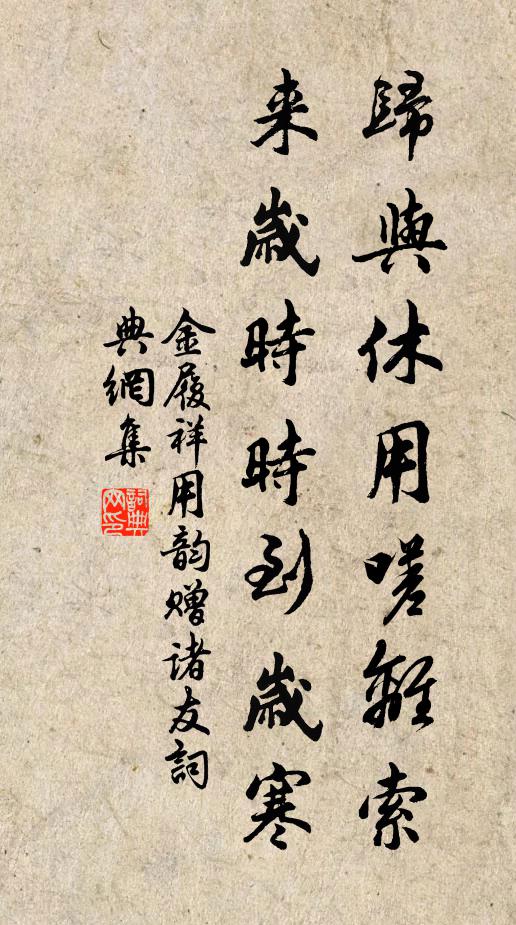 歸與休用嗟離索
来歲時時到歲寒
金履祥用韵贈诸友詞
典網集
詞典網印